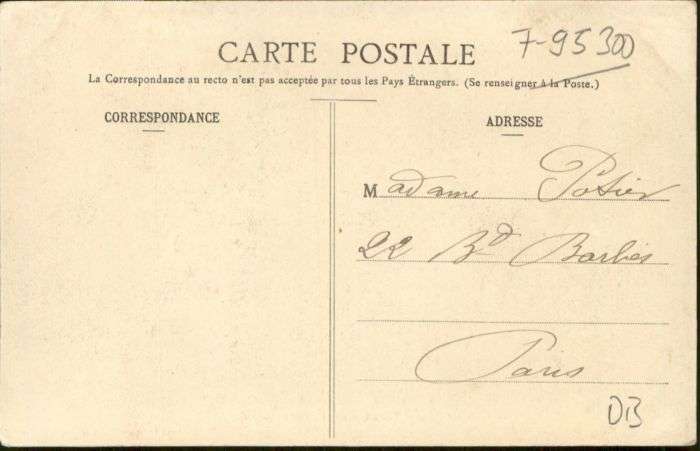 7-95300
CARTE POSTALE
La Correspondance au recto n'est pas acceptée par tous les Pays Étrangers. (Se renseigner à la Poste.)
CORRESPONDANCE
ADRESSE
Madame Potier
22 Bd Barbès
Paris
DB